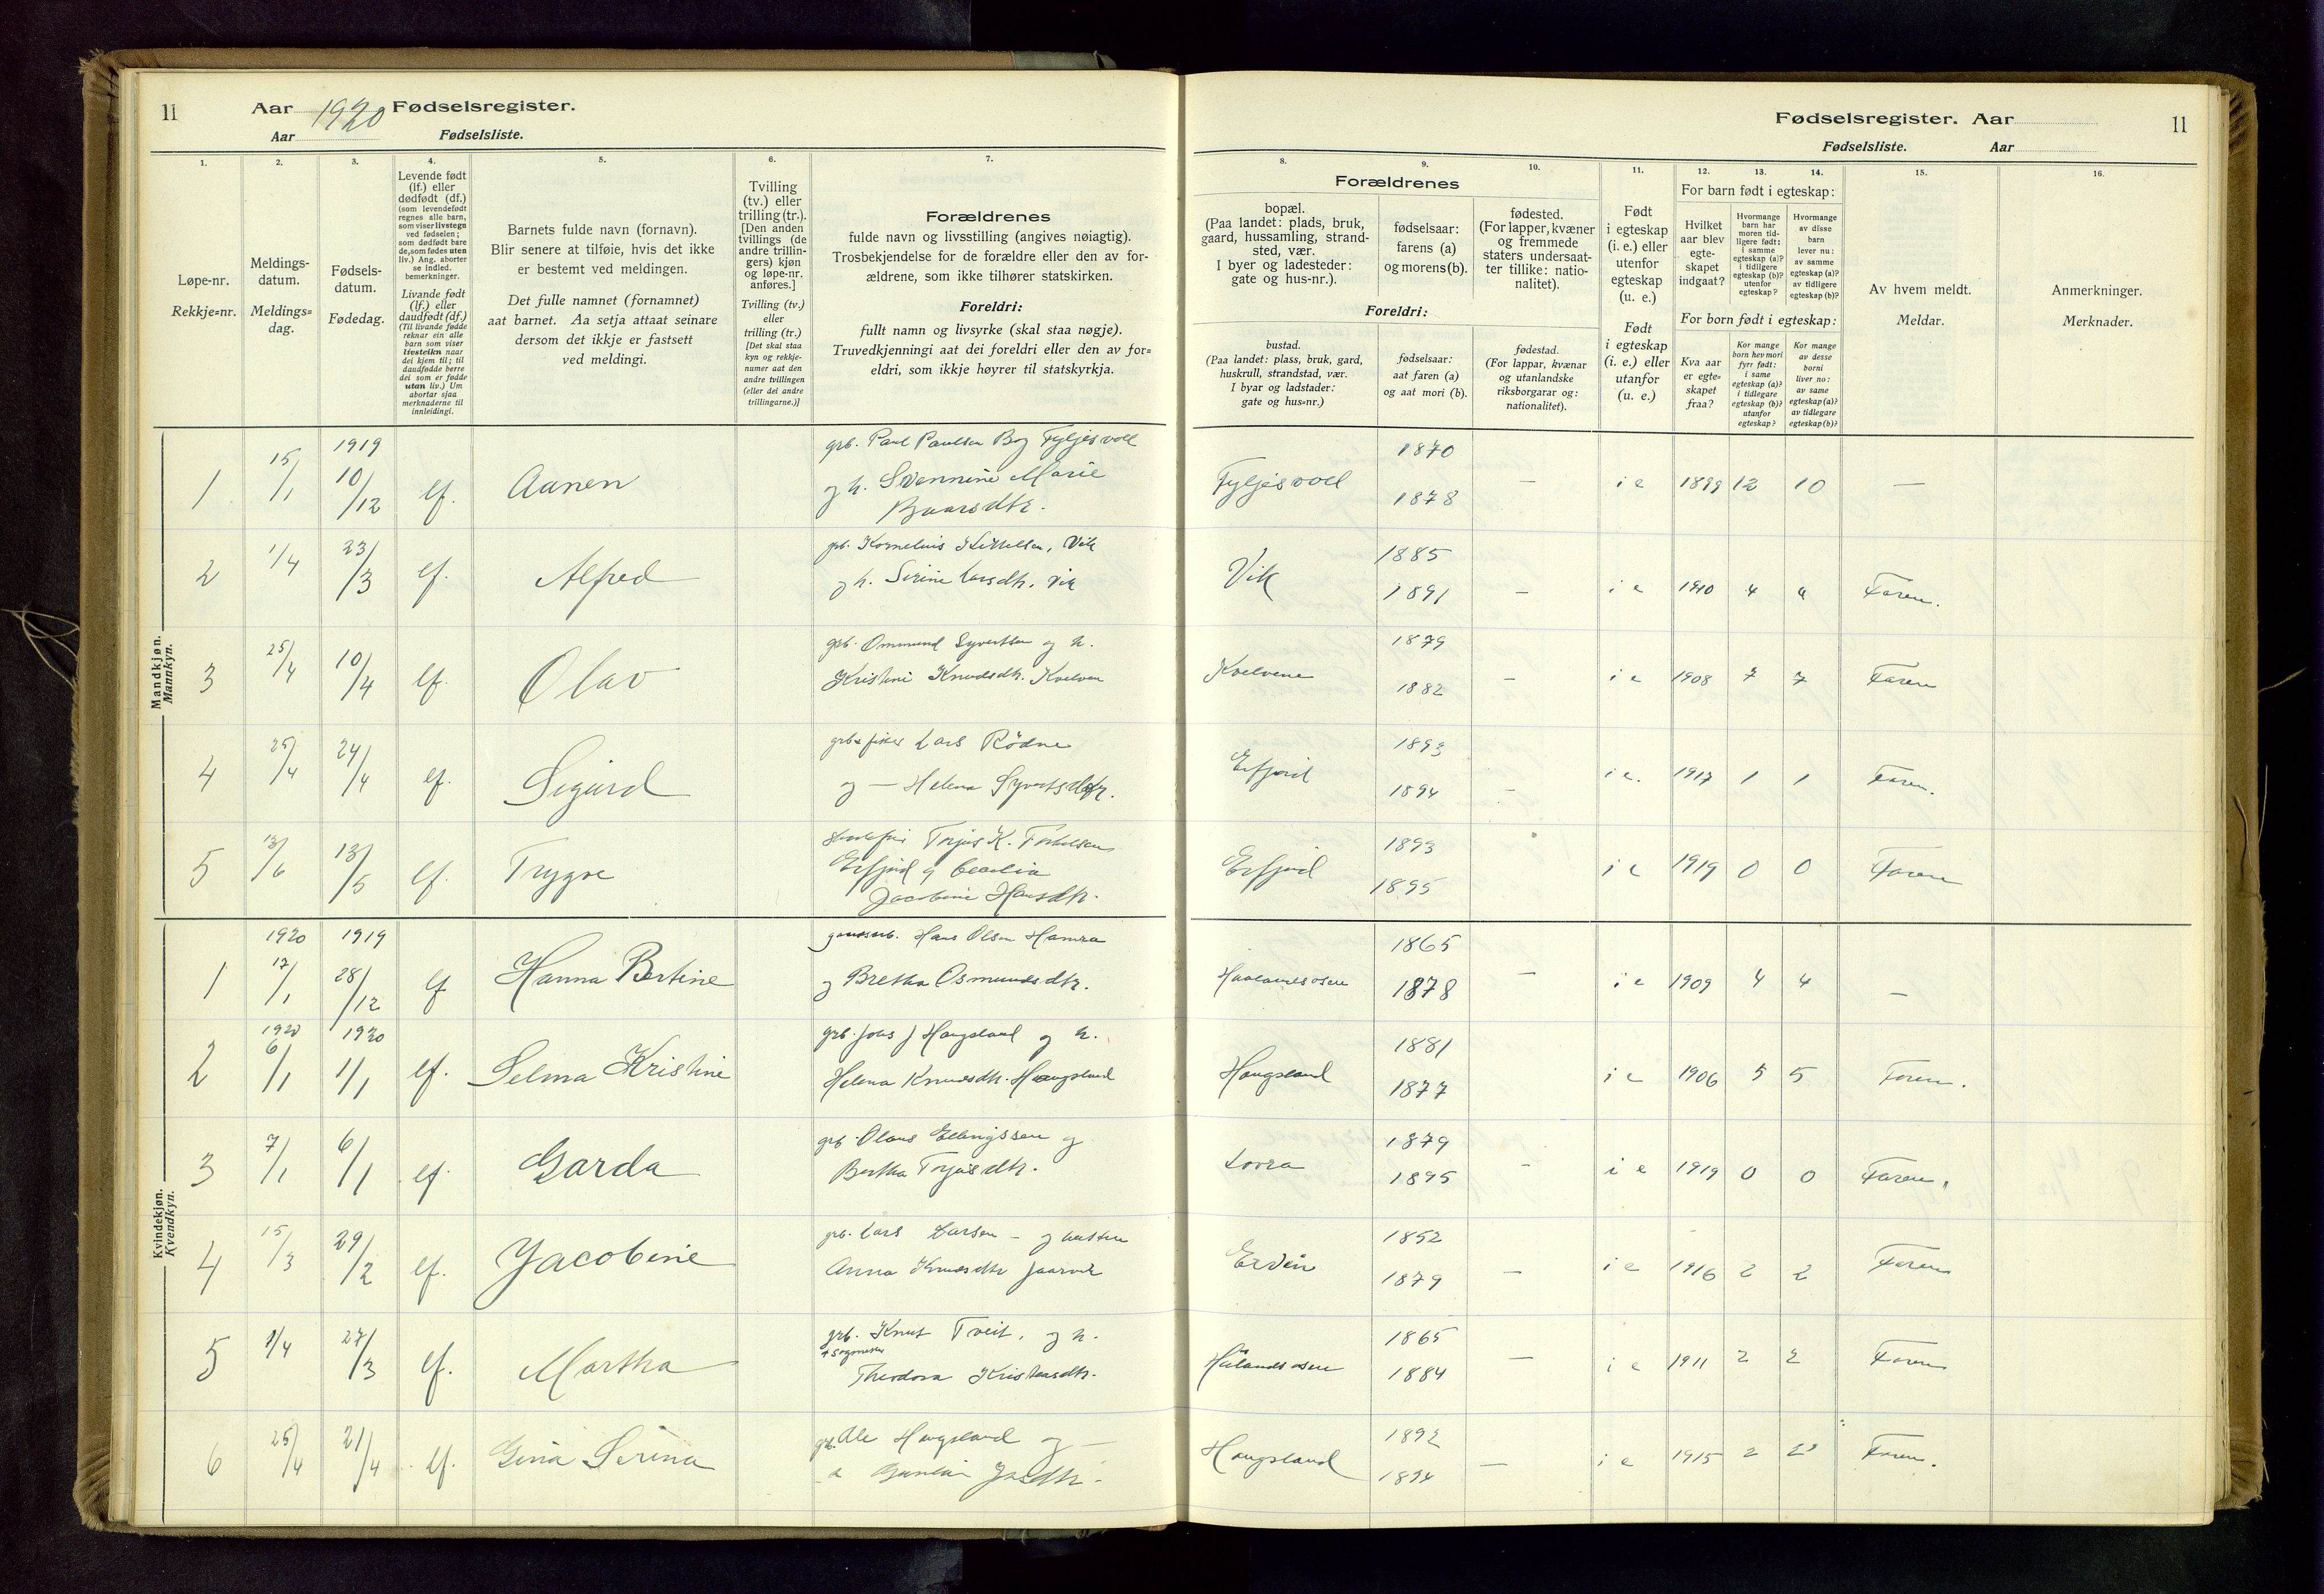 11
Aar 1920 Fødselsregister.
Aar Fødselsliste.
1.
2.
3.
4.
5.
6.
7.
Løpe-nr.
Rekkje=nr.
Meldings-
datum.
Meldings=
dag.
Fødsels-
datum.
Fødedag.
Levende født
(lf.) eller
dødfødt (df.)
(som levendefødt
regnes alle barn,
som viser livstegn
ved fødselen;
som dødfødt bare
de, som fødes uten
liv.) Ang. aborter
se indled.
bemerkninger.
Livande født
(lf.) eller
daudfødt (df.)
(Til livande fødde
reknar ein alle
barn som viser
livsteikn naar
dei kjem til; til
daudfødde berre
dei som er fødde
utan liv.) Um
abortar sjaa
merknaderne til
innleidingi.
Barnets fulde navn (fornavn).
Blir senere at tilføie, hvis det ikke
er bestemt ved meldingen.
Det fulle namnet (fornamnet)
aat barnet. Aa setja attaat seinare
dersom det ikkje er fastsett
ved meldingi.
Tvilling
(tv.) eller
trilling (tr.).
[Den anden
tvillings (de
andre trillin-
gers) kjøn
og løpe-nr.
anføres.]
Tvilling (tv.)
eller
trilling (tr.)
[Det skal staa
kyn og rekkje-
numer aat den
andre tvillingen
(eller dei andre
trillingarne.)]
Forældrenes
fulde navn og livsstilling (angives nøiagtig).
Trosbekjendelse for de forældre eller den av for-
ældrene, som ikke tilhører statskirken.
Foreldri:
fullt namn og livsyrke (skal staa nøgje).
Truvedkjenningi aat dei foreldri eller den av for=
eldri, som ikkje høyrer til statskyrkja.
Mandkjøn.
Mannkyn.
1 15/1 1919 10/12 lf. Aanen grb. Paul Paulsen Boy Fyljesvoll
og h. Svennine Marie
Baardsdtr.
2 1/4 23/3 lf. Alfred grb. Kornelius Kittelsen, Vik
og h. Serine Larsdtr. Vik
3 25/4 10/4 lf. Olav grb. Ommund Syvertsen og h.
Kristine Knudsdtr. Kvelven
4 25/4 24/4 lf. Sigurd grb + fisker Lars Rödne
og — Helena Syvertsdtr.
5 13/6 13/5 lf. Trygve Torjus K. Torkelsen
Erfjord og Cecilia
Jacobine Hansdtr.
Kvindekjøn.
Kvendkyn.
1 1920 17/1 1919 28/12 lf Hanna Bertine gaardarb. Hans Olsen Hamra
og Bretha Osmundsdtr.
2 1920 6/1 1920 1/1 lf. Selma Kristine grb. Joas J Haugsland og h.
Helena Knudsdtr. Haugsland
3 7/1 6/1 lf. Garda grb. Olaus Ellingssen og
Bertha Torjusdtr.
4 15/3 29/2 lf. Jacobine grb. Lars Larsen – og hustru
Anna Knudsdtr Jaarvik
5 1/4 27/3 lf. Martha grb. Knut Tveit, og h.
Theodora Kristensdtr.
6 25/4 21/4 lf. Gina Serina grb. Ole Haugsland og —
Fødselsregister. Aar
Fødselsliste. Aar
11
8.
9.
10.
11.
12.
13.
14.
15.
16.
Forældrenes
bopæl.
(Paa landet: plads, bruk,
gaard, hussamling, strand-
sted, vær.
I byer og ladesteder:
gate og hus-nr.).
fødselsaar:
farens (a)
og morens (b).
fødested.
(For lapper, kvæner
og fremmede
staters undersaat-
ter tillike: natio-
nalitet).
Foreldri:
bustad.
(Paa landet: plass, bruk, gard,
huskrull, strandstad, vær.
I byar og ladstader:
gate og hus=nr.)
fødselsaar:
aat faren (a)
og aat mori (b).
fødestad.
(For lappar, kvænar
og utanlandske
riksborgarar og:
nationalitet).
Født
i egteskap
(i. e.) eller
utenfor
egteskap
(u. e.)
Født
i egteskap
(i. e.) eller
utanfor
(u. e.)
For barn født i egteskap:
Hvilket
aar blev
egte-
skapet
indgaat?
Hvormange
barn har
moren tid-
ligere født:
i samme
egteskap (a)?
i tidligere
egteskap (b)?
utenfor
egteskap?
Hvormange
av disse
barn
lever nu:
av samme
egteskap (a)?
av tidligere
egteskap (b)?
For born født i egteskap:
Kva aar
er egte=
skapet
fraa?
Kor mange
born hev mori
fyrr født:
i same
egteskap (a)?
i tidlegare
egteskap (b)?
utanfor
egteskap?
Kor mange
av desse
borni
liver no:
av same
egteskap (a)?
av tidlegare
egteskap (b)?
Av hvem meldt.
Meldar.
Anmerkninger.
Merknader.
Fyljesvoll 1870 1878 — i e 1899 12 10 —
Vik 1885 1891 — i e 1910 4 4 Faren.
Kvelvene 1879 1882 — i e 1908 7 7 Faren
Erfjord 1893 1894 — i e. 1917 1 1 Faren.
Erfjord 1893 1895 i e 1919 0 0 Faren
Haalandsosen 1865 1878 — i e 1909 4 4 —
Haugsland 1881 1877 i e 1906 5 5 Faren.
Lovra 1879 1895 – i e 1919 0 0 Faren.
1852 1879 — i e 1916 2 2 Faren
Hålandsosen 1865 1884 — i e 1911 2 2 Faren
Haugsland 1892 1894 — i e 1915 2 2 Faren.